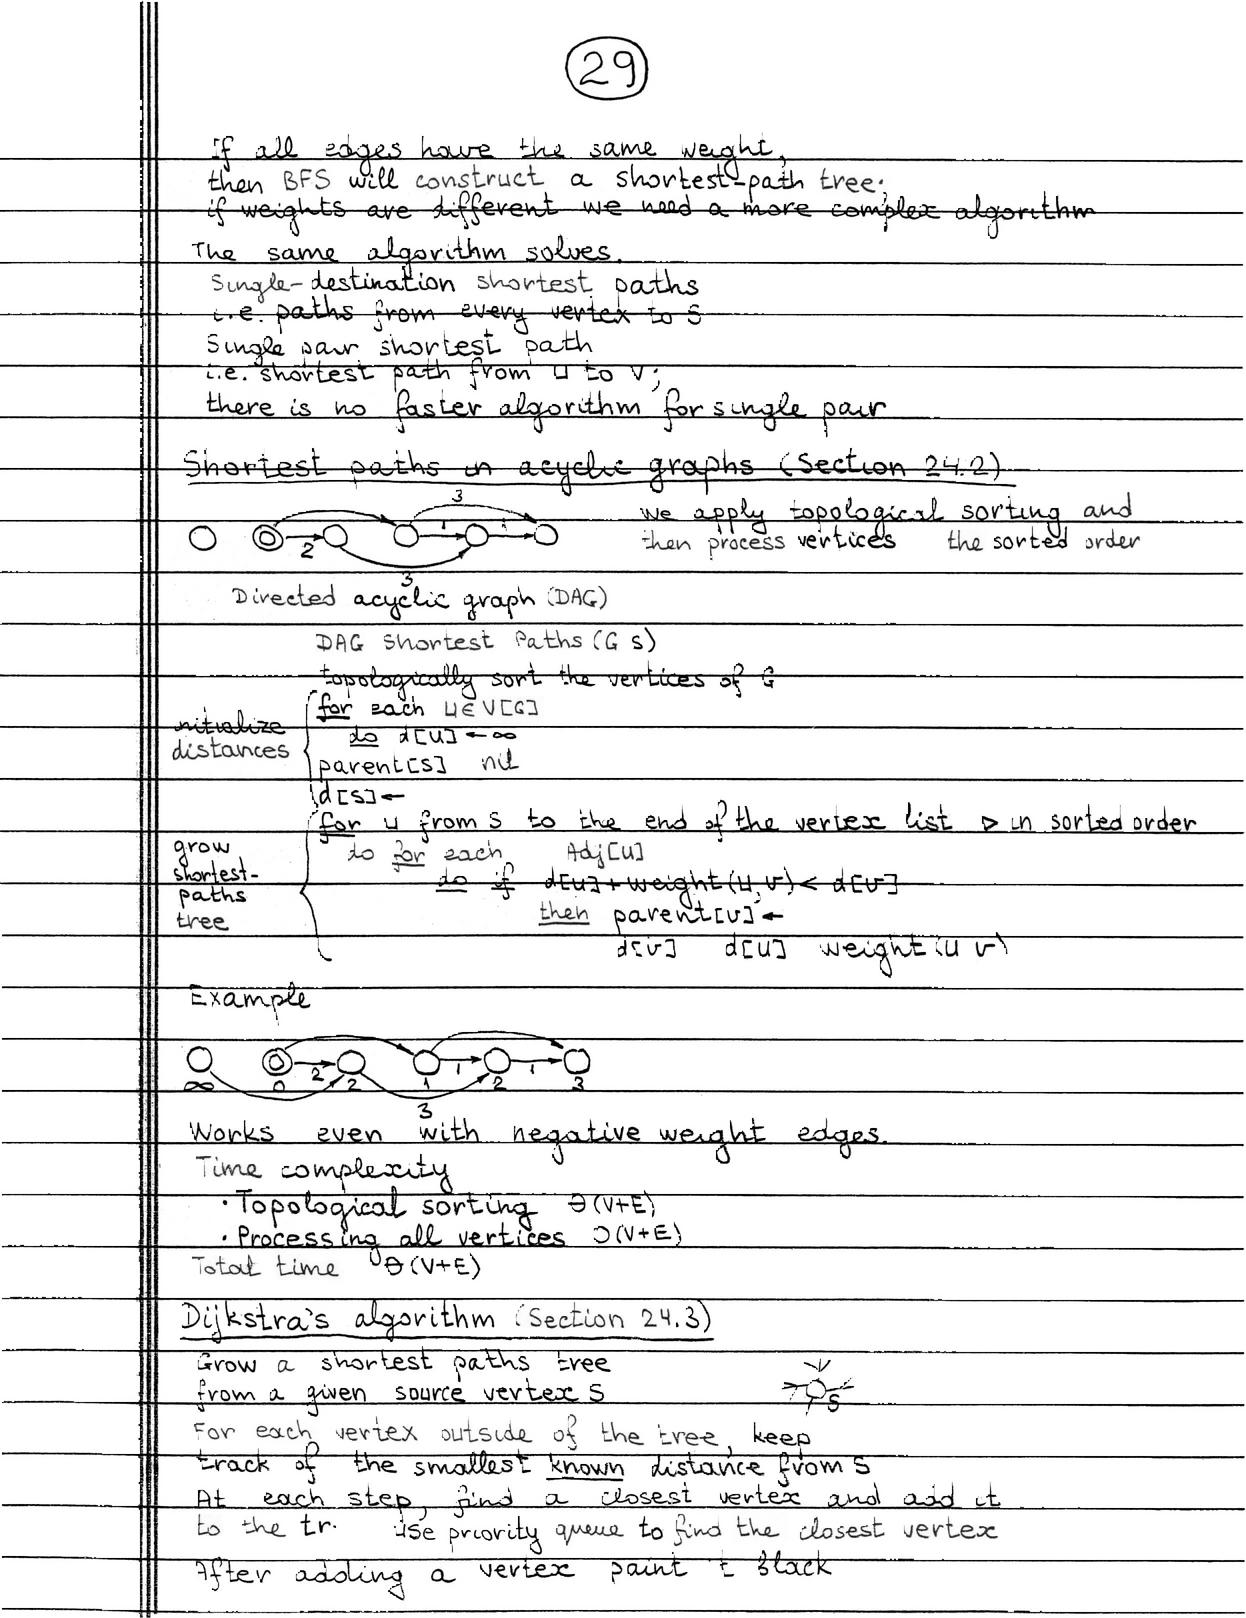 29
If all edges have the same weight,
then BFS will construct a shortest-path tree;
if weights are different we need a more complex algorithm
The same algorithm solves.
Single-destination shortest paths
i.e. paths from every vertex to s
Single pair shortest path
i.e. shortest path from u to v;
there is no faster algorithm for single pair
Shortest paths in acyclic graphs (Section 24.2)
3
we apply topological sorting and
1 1
2
then process vertices the sorted order
3
Directed acyclic graph (DAG)
DAG Shortest Paths (G s)
topologically sort the vertices of G
for each u ∈ V[G]
initialize
do d[u] ← ∞
distances
parent[s] nil
d[s] ←
for u from s to the end of the vertex list ▷ in sorted order
grow
do for each Adj[u]
shortest-
do if d[u] + weight(u, v) < d[v]
paths
then parent[v] ←
tree
d[v] d[u] weight(u v)
Example
2 1 1
∞ 0 2 1 2 3
3
Works even with negative weight edges.
Time complexity
• Topological sorting Θ(V+E)
• Processing all vertices Θ(V+E)
Total time Θ(V+E)
Dijkstra's algorithm (Section 24.3)
Grow a shortest paths tree
from a given source vertex s
s
For each vertex outside of the tree, keep
track of the smallest known distance from s
At each step, find a closest vertex and add it
to the tr. use priority queue to find the closest vertex
After adding a vertex paint t black